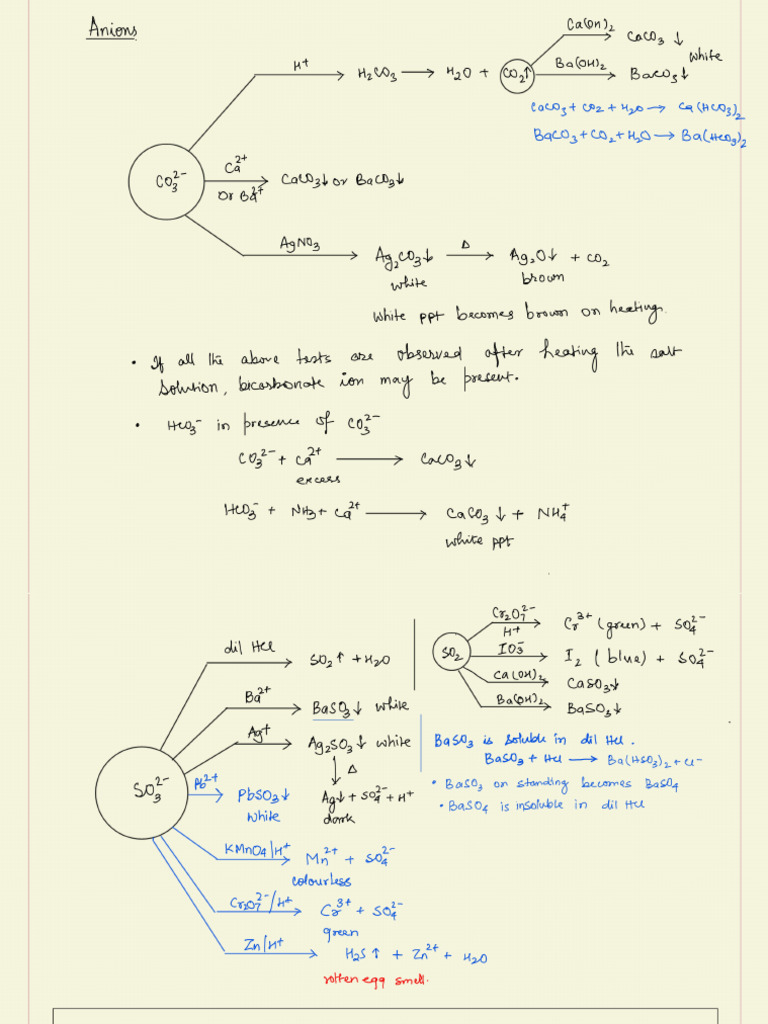 Anions
Ca(OH)₂ → CaCO₃ ↓
H⁺ → H₂CO₃ → H₂O + CO₂↑
white
Ba(OH)₂ → BaCO₃↓
CaCO₃ + CO₂ + H₂O → Ca(HCO₃)₂
BaCO₃ + CO₂ + H₂O → Ba(HCO₃)₂
CO₃²⁻
Ca²⁺ or Ba²⁺ → CaCO₃↓ or BaCO₃↓
AgNO₃ → Ag₂CO₃↓ Δ → Ag₂O↓ + CO₂
white brown
white ppt becomes brown on heating.
• If all the above tests are observed after heating the salt
solution, bicarbonate ion may be present.
• HCO₃⁻ in presence of CO₃²⁻
CO₃²⁻ + Ca²⁺ → CaCO₃↓
excess
HCO₃⁻ + NH₃ + Ca²⁺ → CaCO₃ ↓ + NH₄⁺
white ppt
dil HCl → SO₂↑ + H₂O
SO₂
Cr₂O₇²⁻ H⁺ → Cr³⁺ (green) + SO₄²⁻
IO₃⁻ → I₂ (blue) + SO₄²⁻
Ca(OH)₂ → CaSO₃↓
Ba(OH)₂ → BaSO₃↓
SO₃²⁻
Ba²⁺ → BaSO₃↓ white
Ag⁺ → Ag₂SO₃↓ white
↓ Δ
Ag↓ + SO₄²⁻ + H⁺
dark
BaSO₃ is soluble in dil HCl.
BaSO₃ + HCl → Ba(HSO₃)₂ + Cl⁻
• BaSO₃ on standing becomes BaSO₄
• BaSO₄ is insoluble in dil HCl
Pb²⁺ → PbSO₃↓
white
KMnO₄/H⁺ → Mn²⁺ + SO₄²⁻
colourless
Cr₂O₇²⁻/H⁺ → Cr³⁺ + SO₄²⁻
green
Zn/H⁺ → H₂S↑ + Zn²⁺ + H₂O
rotten egg smell.